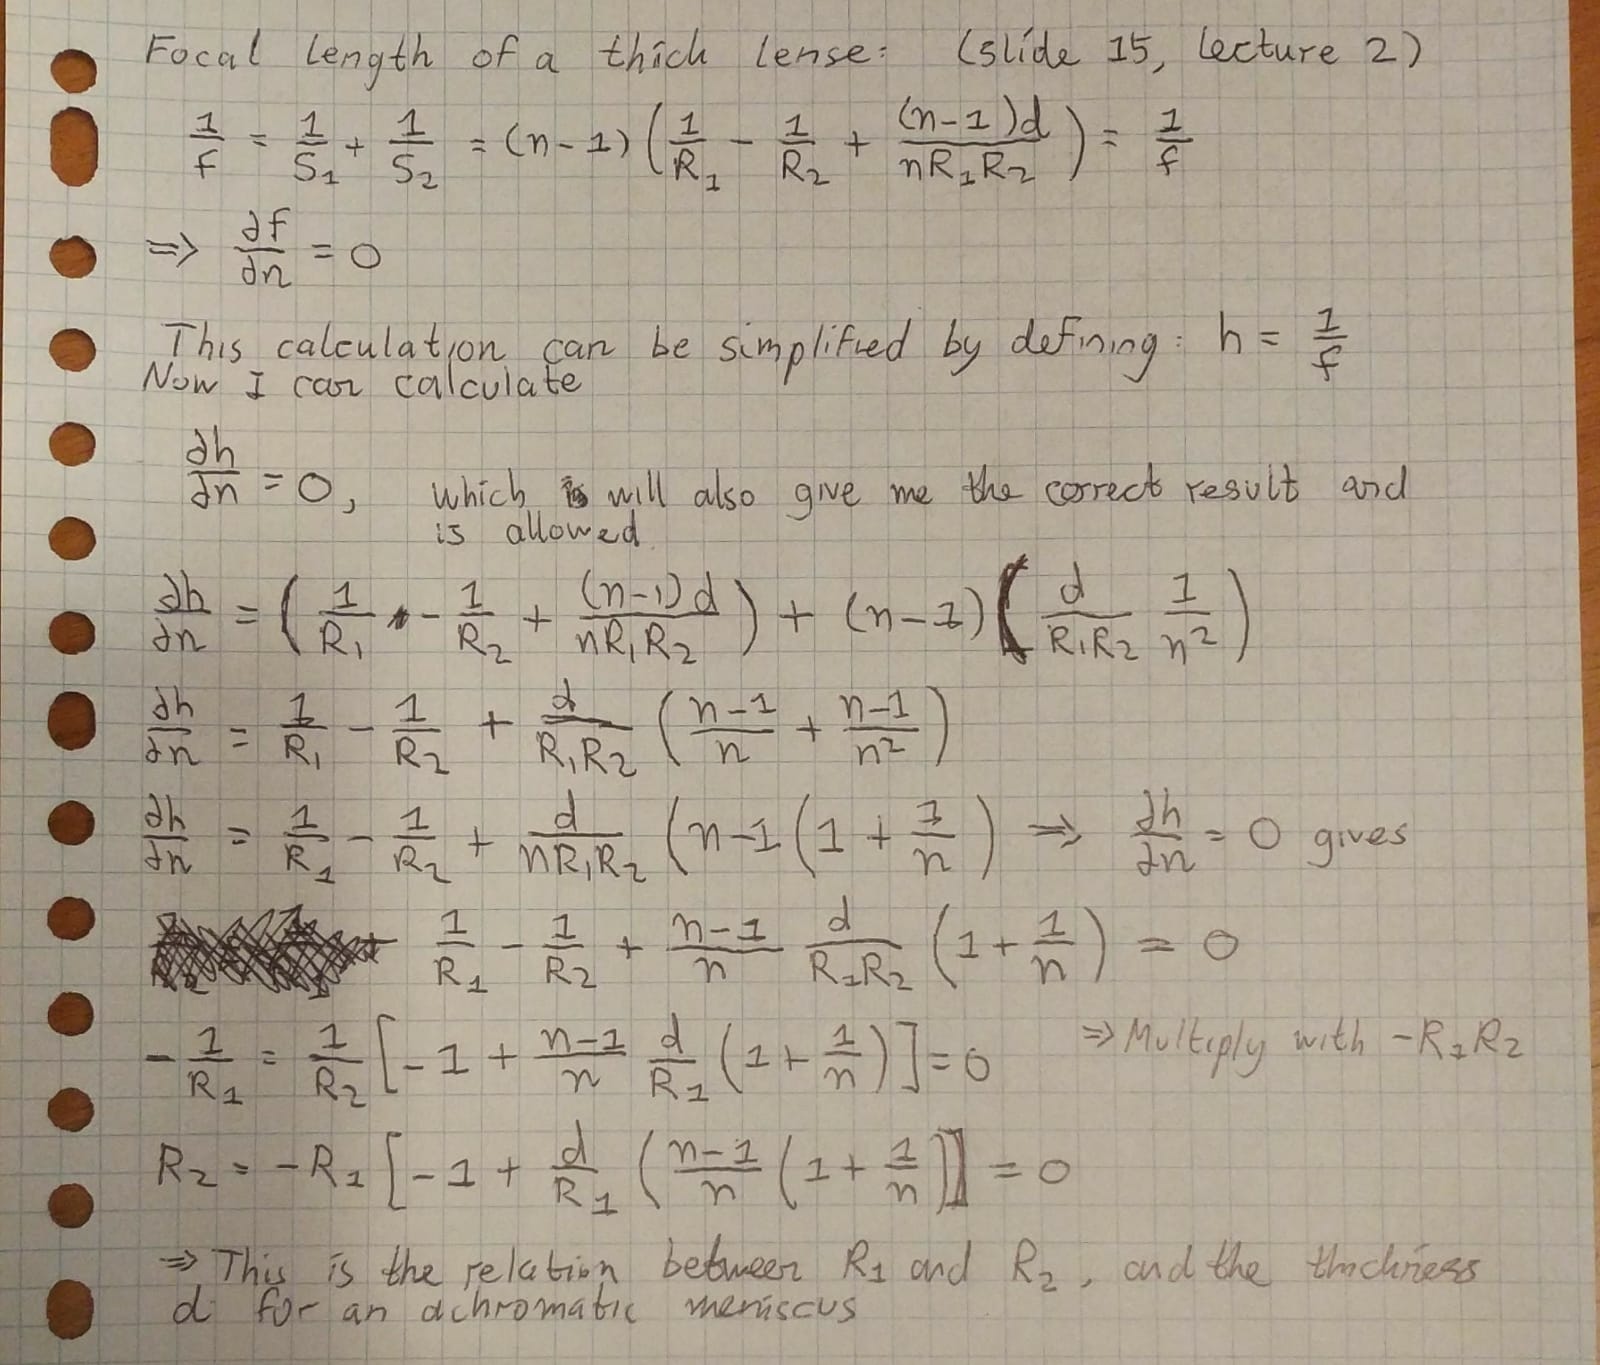 Focal length of a thick lense: (slide 15, lecture 2)
1/f = 1/S₁ + 1/S₂ = (n-1)(1/R₁ - 1/R₂ + (n-1)d/(nR₁R₂)) = 1/f
=> ∂f/∂n = 0
This calculation can be simplified by defining: h = 1/f
Now I can calculate
∂h/∂n = 0, which will also give me the correct result and
is allowed.
∂h/∂n = (1/R₁ - 1/R₂ + (n-1)d/(nR₁R₂)) + (n-1)(d/(R₁R₂) 1/n²)
∂h/∂n = 1/R₁ - 1/R₂ + d/(R₁R₂) ((n-1)/n + (n-1)/n²)
∂h/∂n = 1/R₁ - 1/R₂ + d/(nR₁R₂) (n-1(1 + 1/n) => ∂h/∂n = 0 gives
1/R₁ - 1/R₂ + (n-1)/n d/(R₁R₂) (1 + 1/n) = 0
-1/R₁ = 1/R₂ [-1 + (n-1)/n d/R₁ (1 + 1/n)] = 0 => Multiply with -R₁R₂
R₂ = -R₁ [-1 + d/R₁ ((n-1)/n (1 + 1/n)] = 0
=> This is the relation between R₁ and R₂, and the thickness
d for an achromatic meniscus